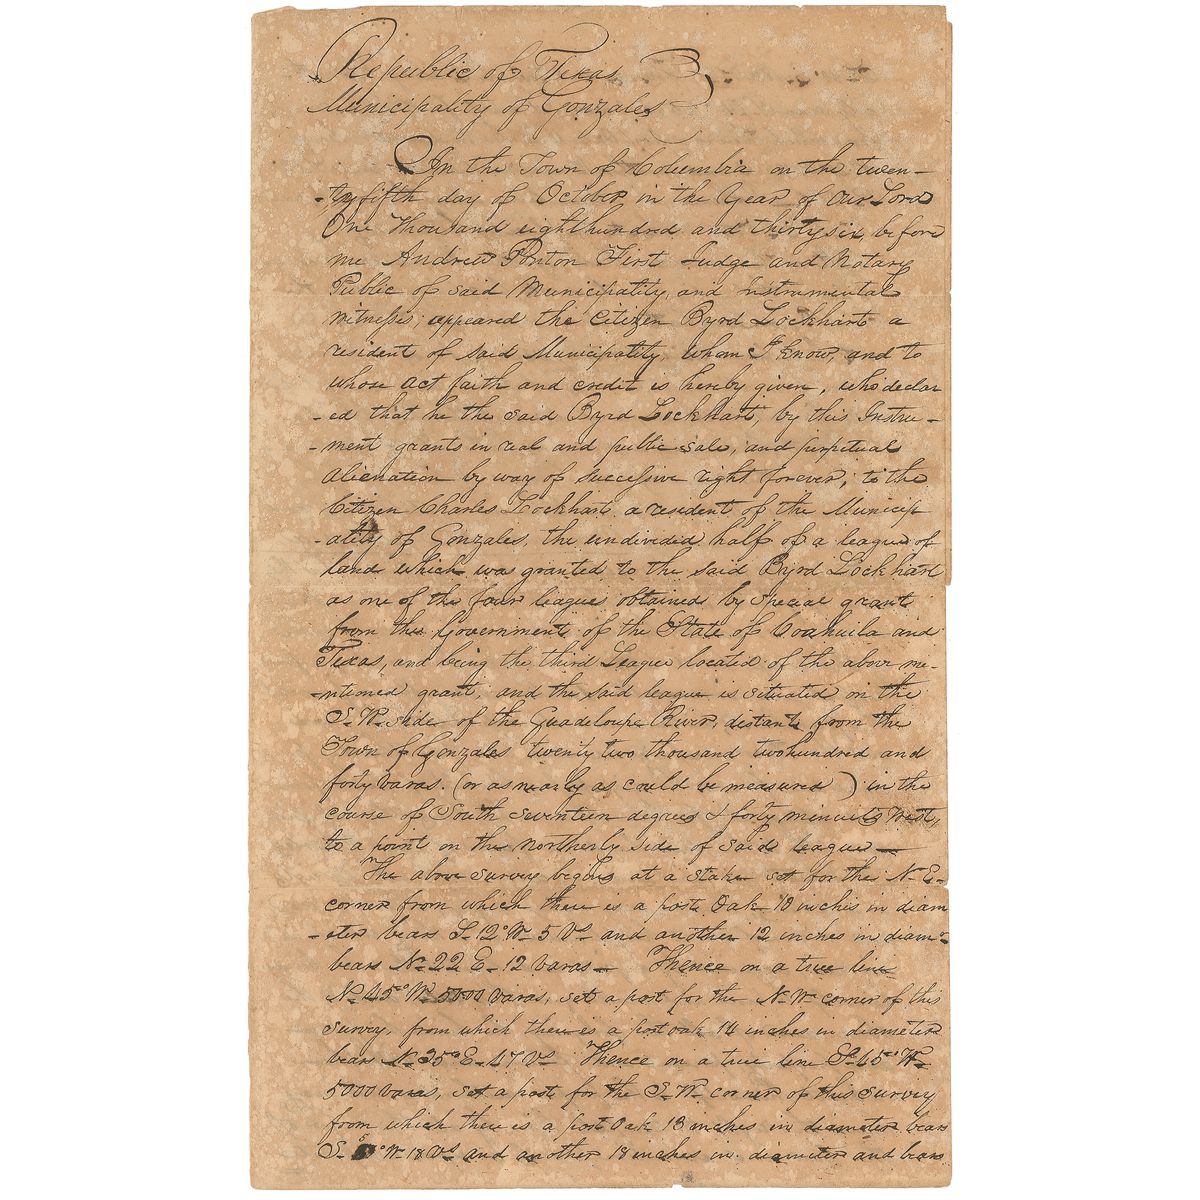 Republic of Texas
Municipality of Gonzales
In the Town of Columbia on the twen-
-ty fifth day of October in the Year of our Lord
One thousand eight hundred and thirty six, before
me Andrew Ponton First Judge and Notary
Public of said Municipality, and instrumental
witness; appeared the Citizen Byrd Lockhart a
resident of said Municipality, whom I know, and to
whose act faith and credit is hereby given, who declar
-ed that he the said Byrd Lockhart, by this Instru-
-ment grants in real and public sale, and perpetual
alienation by way of successive right forever, to the
Citizen Charles Lockhart a resident of the Municip
-ality of Gonzales, the undivided half of a league of
land which was granted to the said Byrd Lockhart
as one of the four leagues obtained by special grant
from the Government of the State of Coahuila and
Texas, and being the third League located of the above me-
-ntioned grant, and the said league is situated on the
S. W. side of the Guadeloupe River, distant from the
Town of Gonzales twenty two thousand two hundred and
forty varas. (or as nearly as could be measured) in the
course of South seventeen degrees & forty minuits West,
to a point on the northerly side of said league —
The above survey begins at a stake set for the N. E.
corner from which there is a post Oak 10 inches in diam
-eter bears S. 12° W. 5 Vs and another 12 inches in diam.
bears N. 22 E. 12 varas — Thence on a true line
N. 45° W. 5000 varas, set a post for the N. W. corner of this
survey, from which there is a post oak 14 inches in diameter
bears N. 35° E. 47 Vs Thence on a true line S. 45° W.
5000 varas, set a post for the S. W. corner of this survey
from which there is a post Oak 13 inches in diameter bears
S. 5° W. 18 Vs and another 18 inches in diameter and bears